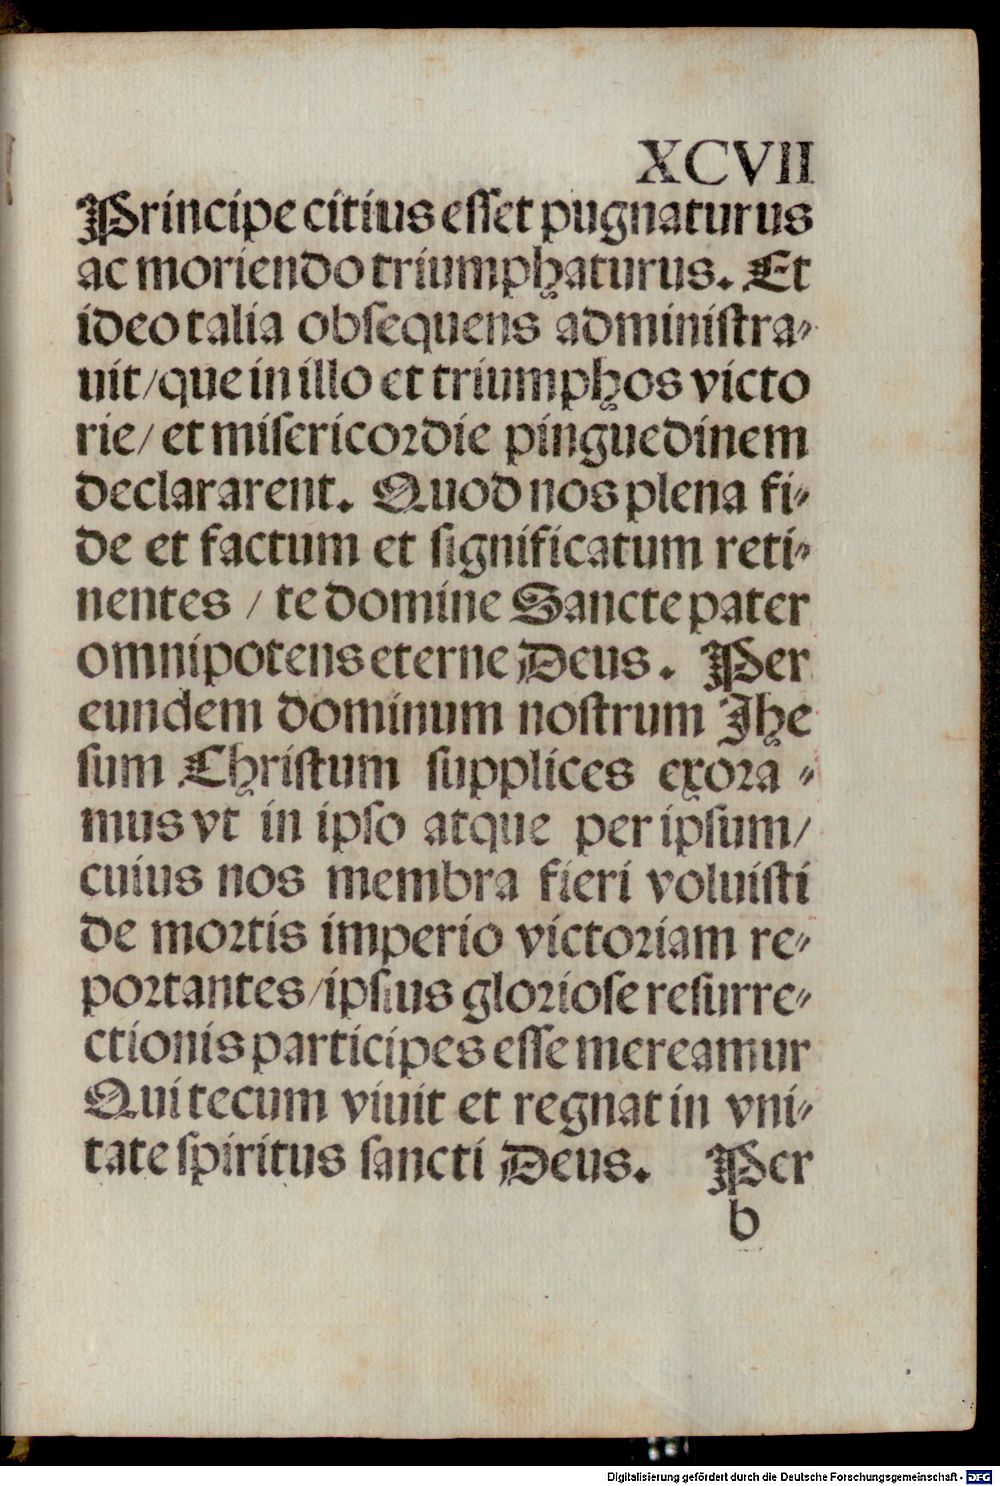 XCVII
Principe citius eſſet pugnaturus
ac moriendo triumphaturus. Et
ideo talia obſequens adminiſtra⸗
uit/que in illo et triumphos victo
rie/ et miſericordie pinguedinem
declararent. Quod nos plena fi⸗
de et factum et ſignificatum reti⸗
nentes / te domine Sancte pater
omnipotens eterne Deus. Per
eundem dominum noſtrum Jhe
ſum Chriſtum ſupplices exora⸗
mus vt in ipſo atque per ipſum/
cuius nos membra fieri voluiſti
de mortis imperio victoriam re⸗
portantes/ipſius glorioſe reſurre⸗
ctionis participes eſſe mereamur
Qui tecum viuit et regnat in vni⸗
tate ſpiritus ſancti Deus. Per
b
Digitalisierung gefördert durch die Deutsche Forschungsgemeinschaft - DFG